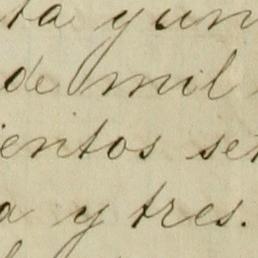 ta y un
de mil
ientos set
a y tres.